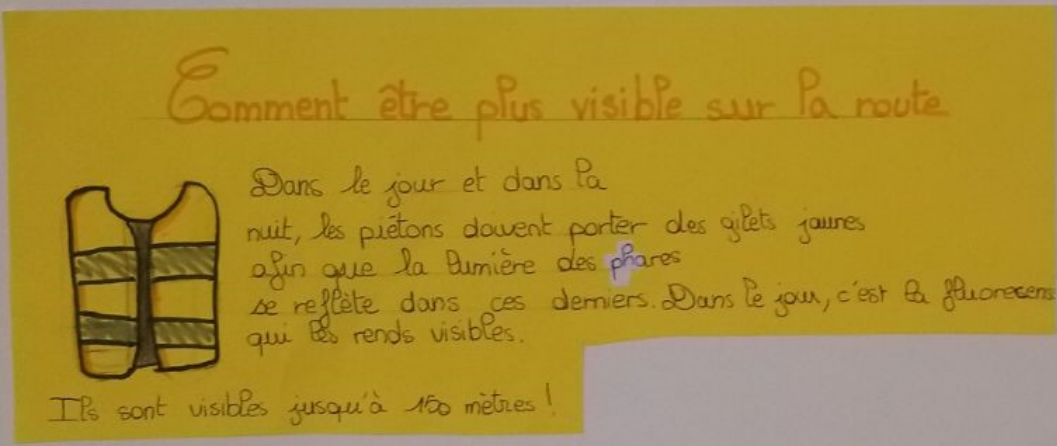 Comment être plus visible sur la route
Dans le jour et dans la
nuit, les piétons doivent porter des gilets jaunes
afin que la lumière des phares
se reflète dans ces derniers. Dans le jour, c'est la fluorecens
qui les rends visibles.
Ils sont visibles jusqu'à 150 mètres !